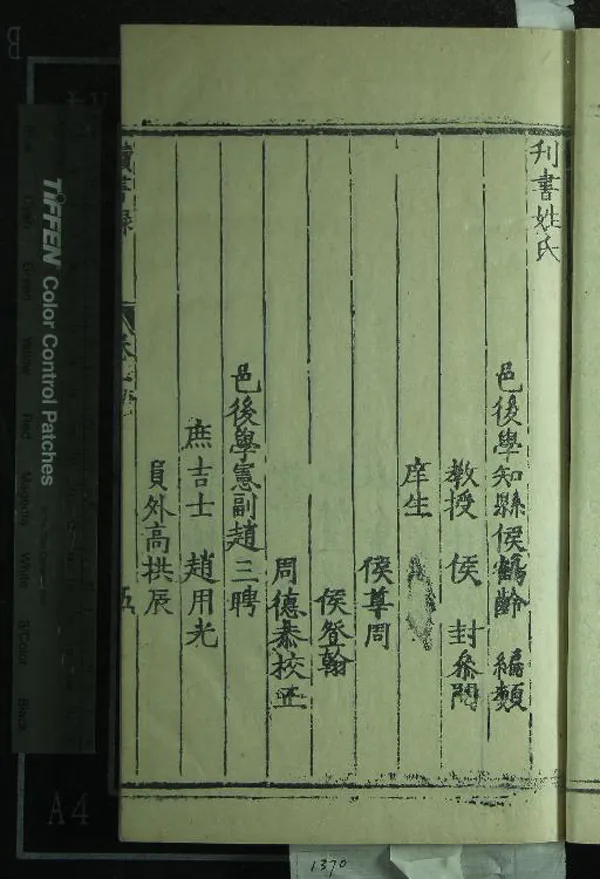 刋書姓氏
邑後學知縣侯鶴齡 編類
教授 侯 封叅閱
庠生
侯尊周
侯登翰
周德叅挍正
邑後學憲副趙三聘
庶吉士 趙用光
員外高拱辰
讀書錄
伍
TIFFEN Color Control Patches
Cyan Green Yellow Red Magenta White 3/Color Black
A4
1370